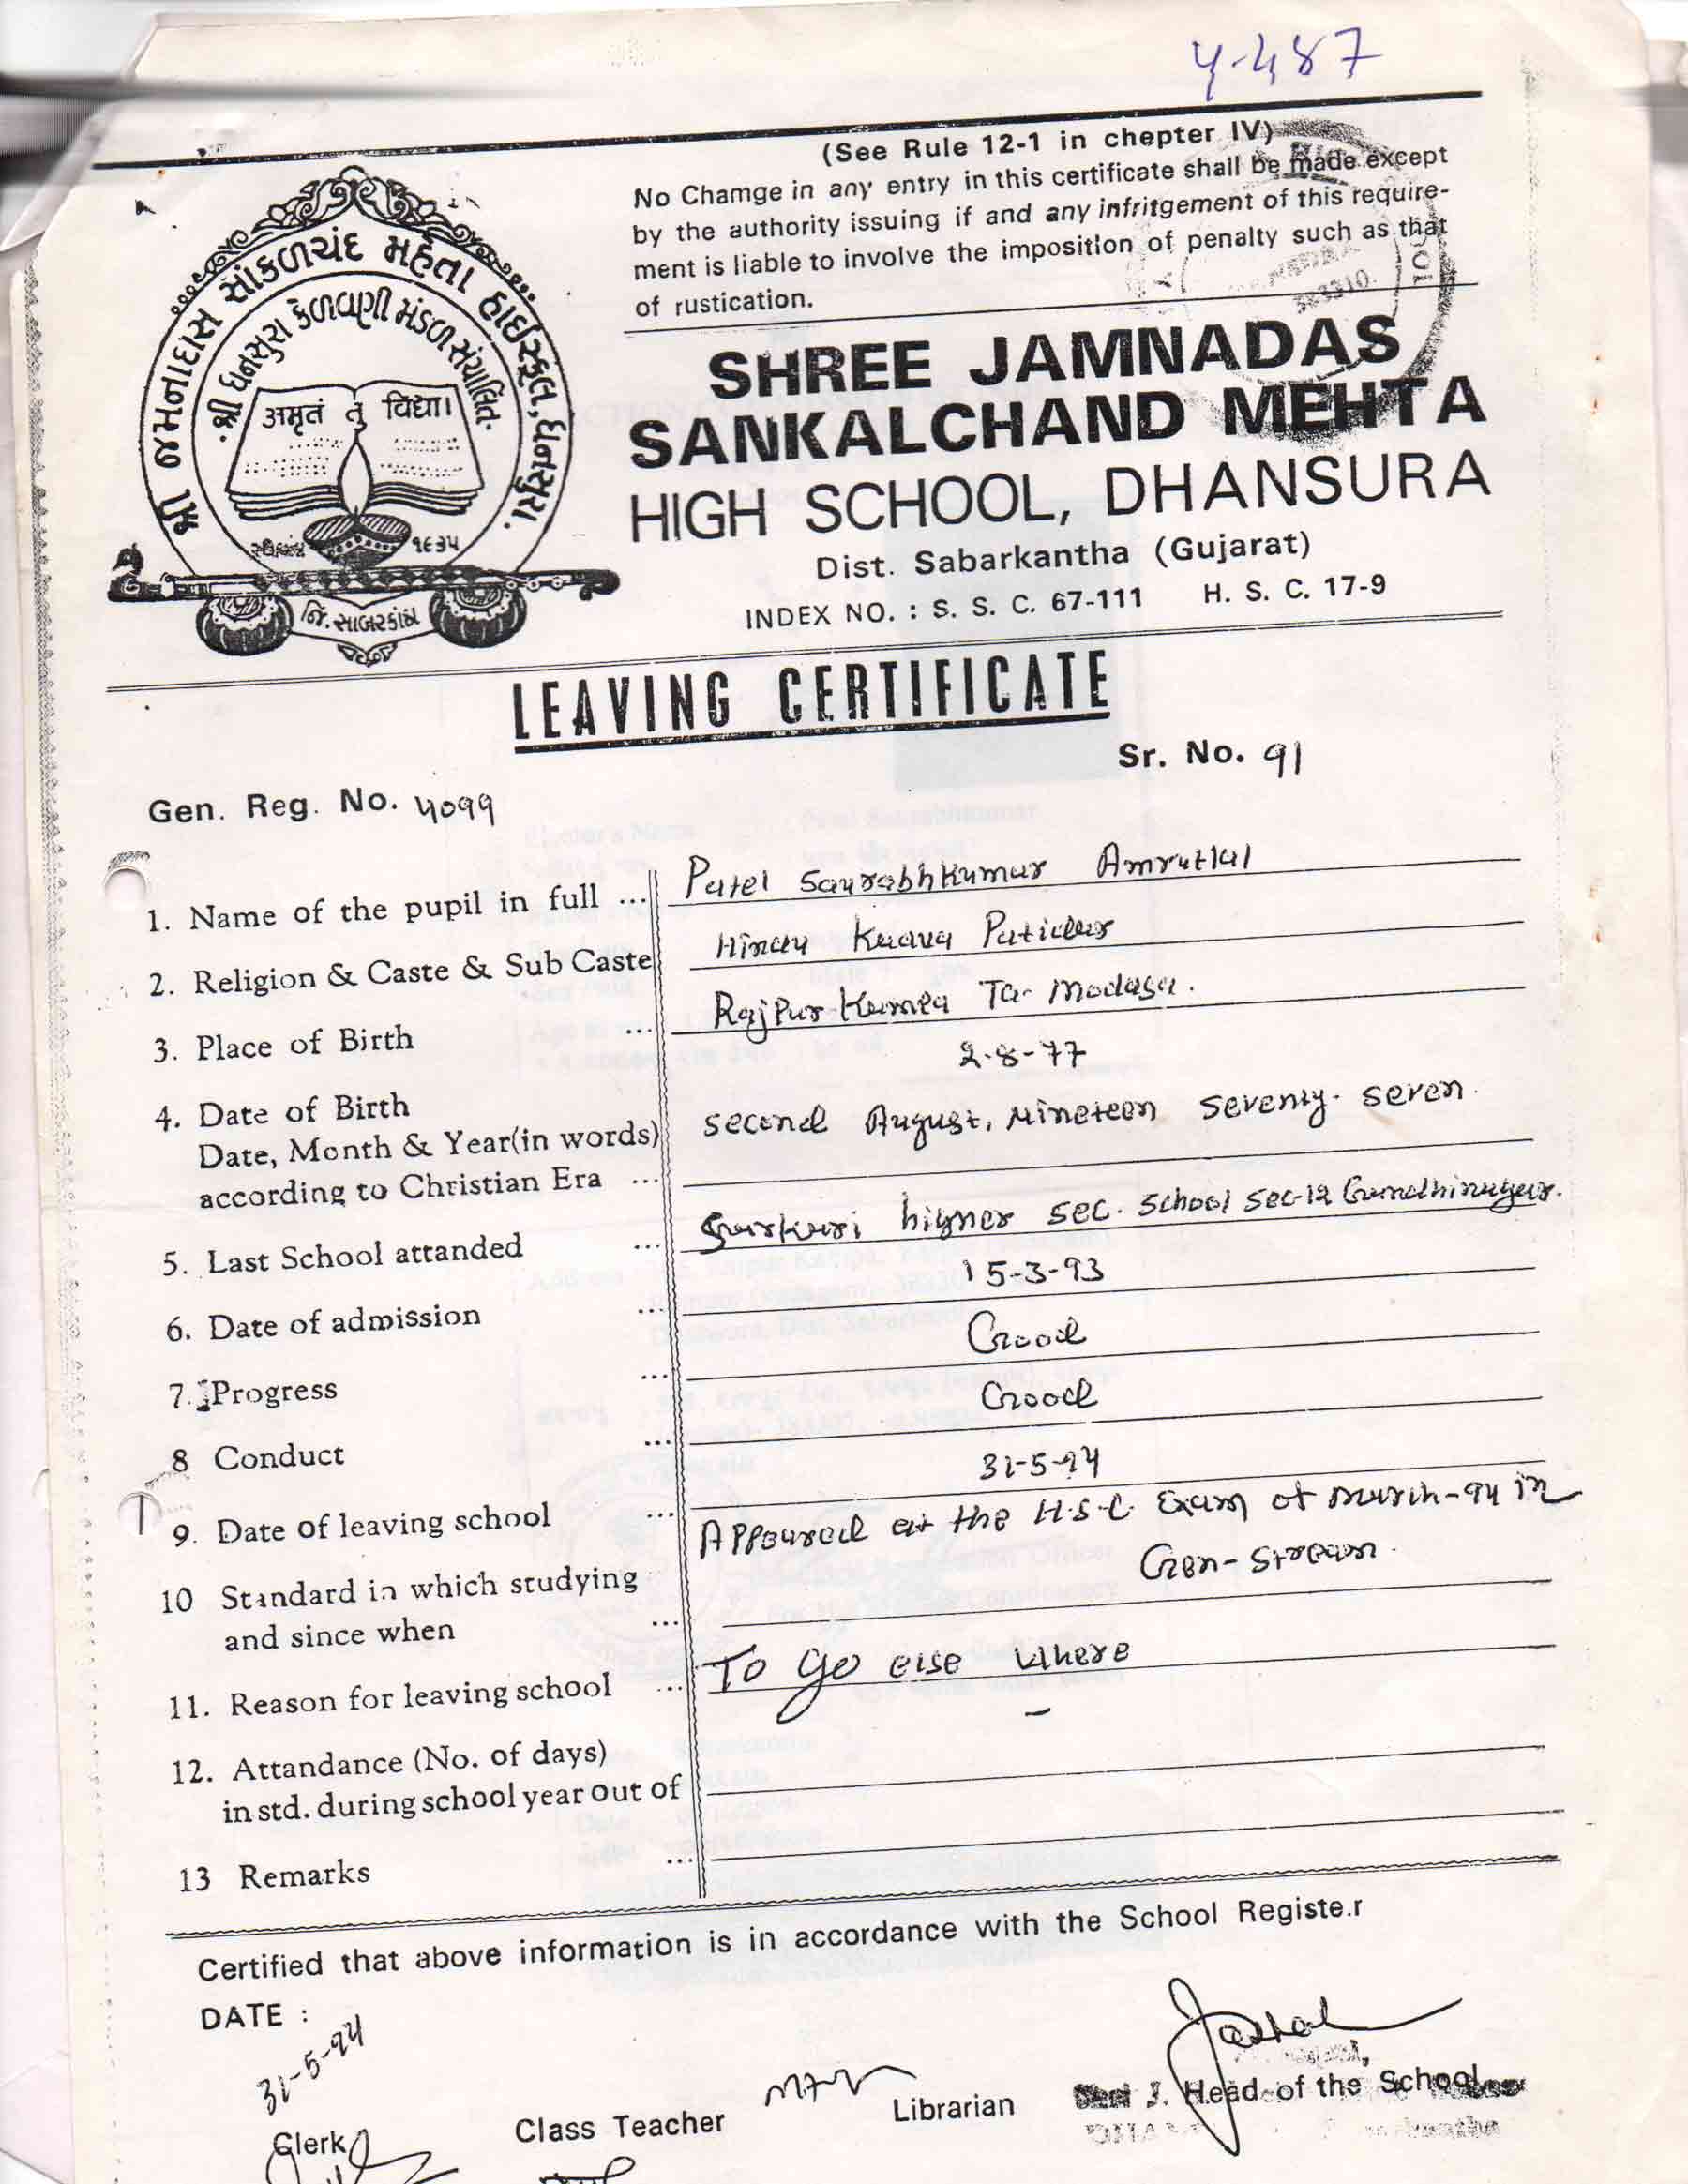 4-487
(See Rule 12-1 in chepter IV)
No Chamge in any entry in this certificate shall be made except
by the authority issuing if and any infritgement of this require-
ment is liable to involve the imposition of penalty such as that
of rustication.
શ્રી જમનાદાસ સાંકળચંદ મહેતા હાઈસ્કૂલ, ધનસુરા.
શ્રી ધનસુરા કેળવણી મંડળ સંચાલિત
अमृतं तु विद्या।
૧૯૩૫
જિ. સાબરકાંઠા
SHREE JAMNADAS
SANKALCHAND MEHTA
HIGH SCHOOL, DHANSURA
Dist. Sabarkantha (Gujarat)
INDEX NO. : S. S. C. 67-111 H. S. C. 17-9
LEAVING CERTIFICATE
Sr. No. 91
Gen. Reg. No. 4099
1. Name of the pupil in full ... Patel Saurabhkumar Amrutlal
2. Religion & Caste & Sub Caste Hindu Kadva Patidar
3. Place of Birth ... Rajpur-Kampa Ta- Modasa.
4. Date of Birth 2-8-77
Date, Month & Year(in words) second August, Nineteen seventy-seven.
according to Christian Era ...
5. Last School attanded ... Sarkari higher sec. School sec-12 Gandhinagar.
6. Date of admission ... 15-3-93
7. Progress ... Good
8 Conduct ... Good
9. Date of leaving school ... 31-5-94
10 Standard in which studying Appeared at the H.S.C. Exam of March-94 in
and since when ... Gen-stream.
11. Reason for leaving school ... To go else where
12. Attandance (No. of days) -
in std. during school year out of
13 Remarks ...
Certified that above information is in accordance with the School Registe.r
DATE :
31-5-94
Clerk Class Teacher Librarian Head of the School